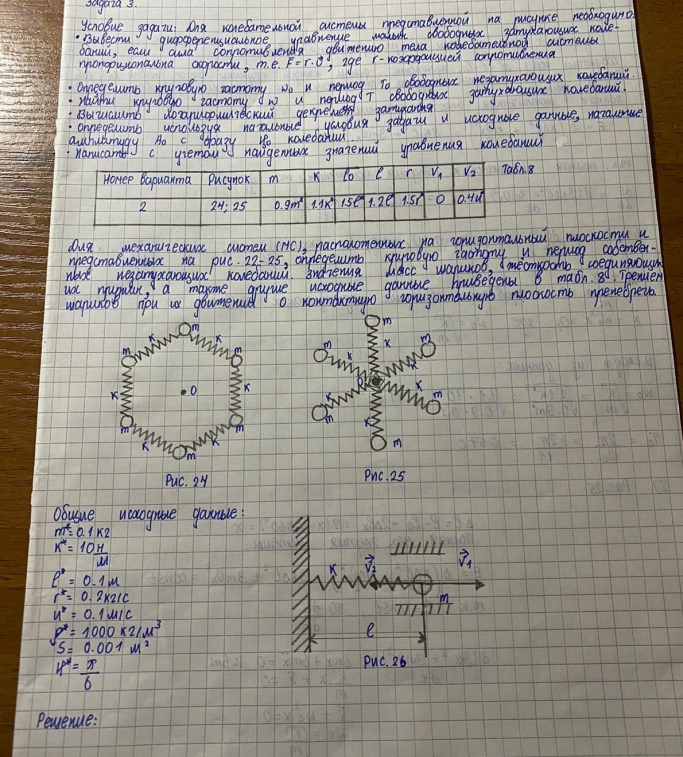 Задача 3.
Условие задачи: Для колебательной системы представленной на рисунке необходимо:
• Вывести дифференциальное уравнение малых свободных затухающих коле-
баний, если сила сопротивления движению тела колебательной системы
пропорциональна скорости, т.е. F = r·υ, где r - коэффициент сопротивления
• Определить круговую частоту ω₀ и период T₀ свободных незатухающих колебаний.
• Найти круговую частоту ω и период T свободных затухающих колебаний.
• Вычислить логарифмический декремент затухания
• определить используя начальные условия задачи и исходные данные, начальные
амплитуду A₀ и фазу колебаний
• Написать с учетом найденных значений уравнения колебаний
Табл. 8
Номер варианта Рисунок m K l₀ l r V₁ V₂
2 24; 25 0.9m* 1.1K* 1.5l* 1.2l* 1.5r* 0 0.4u*
Для механических систем (МС), расположенных на горизонтальный плоскости и
представленных на рис. 22-25, определить круговую частоту и период собствен-
ных незатухающих колебаний. Значения масс шариков, жесткость соединяющих
их пружин, а также другие исходные данные приведены в табл. 8 Трением
шариков при их движении о контактную горизонтальную плоскость пренебречь.
m
K K
m m
K K
O
m m
K K
m
Рис. 24
m
K
m m
K K
K K
m m
K
m
Рис. 25
Общие исходные данные:
m* = 0.1 кг
K* = 10 н/м
l* = 0.1 м
r* = 0.2 кг/с
u* = 0.1 м/с
ρ* = 1000 кг/м³
S* = 0.001 м²
π/6
K V₂ V₁
m
l
Рис. 26
Решение: